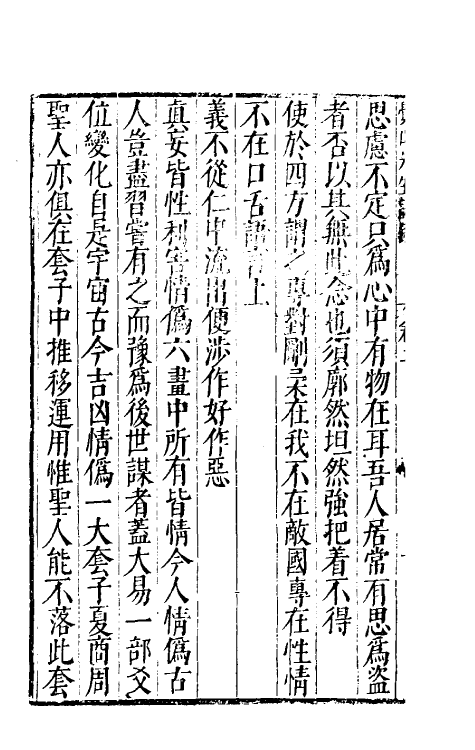 思慮不定只爲心中有物在耳吾人居常有思爲盜
者否以其無此念也須廓然坦然強把着不得
使於四方謂之專對剛柔在我不在敵國專在性情
不在口舌語言上
義不從仁中流出便涉作好作惡
眞妄皆性利害情僞六畫中所有皆情今人情僞古
人豈盡習嘗有之而豫爲後世謀者蓋大易一部爻
位變化自是宇宙古今吉凶情僞一大套子夏商周
聖人亦俱在套子中推移運用惟聖人能不落此套